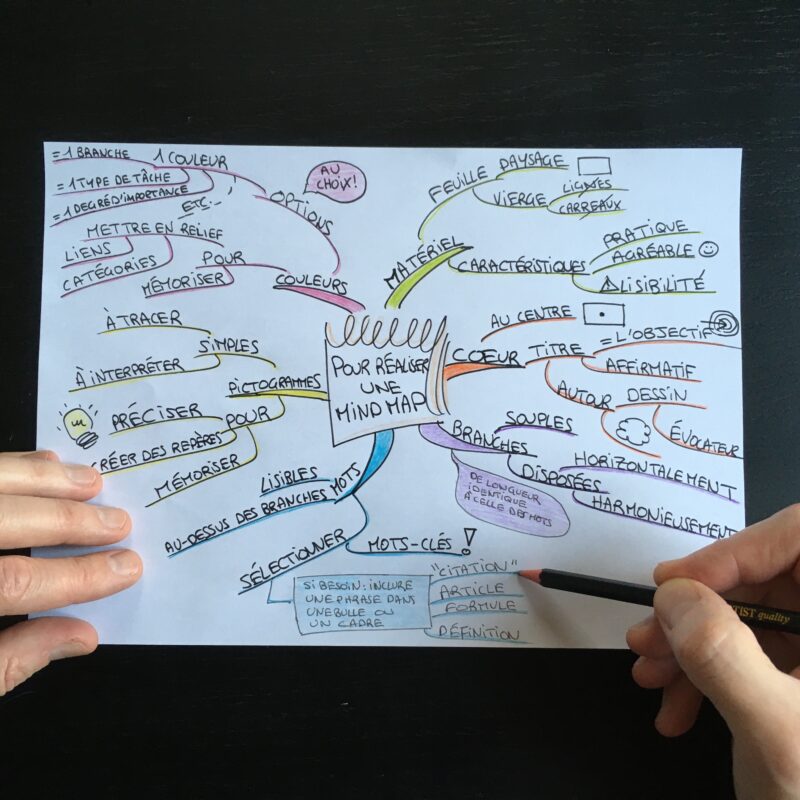 POUR RÉALISER
UNE
MIND MAP
MATÉRIEL
FEUILLE
PAYSAGE
VIERGE
LIGNES
CARREAUX
CARACTÉRISTIQUES
PRATIQUE
AGRÉABLE
LISIBILITÉ
COEUR
AU CENTRE
TITRE
= L'OBJECTIF
AFFIRMATIF
AUTOUR
DESSIN
ÉVOCATEUR
BRANCHES
SOUPLES
DISPOSÉES
HORIZONTALEMENT
HARMONIEUSEMENT
DE LONGUEUR
IDENTIQUE
À CELLE DES MOTS
MOTS
LISIBLES
AU-DESSUS DES BRANCHES
SÉLECTIONNER
MOTS-CLÉS !
SI BESOIN : INCLURE
UNE PHRASE DANS
UNE BULLE OU
UN CADRE
"CITATION"
ARTICLE
FORMULE
DÉFINITION
PICTOGRAMMES
SIMPLES
À TRACER
À INTERPRÉTER
POUR
PRÉCISER
CRÉER DES REPÈRES
MÉMORISER
COULEURS
OPTIONS
AU
CHOIX!
1 COULEUR
= 1 BRANCHE
= 1 TYPE DE TÂCHE
= 1 DEGRÉ D'IMPORTANCE
ETC...
POUR
METTRE EN RELIEF
LIENS
CATÉGORIES
MÉMORISER
TIST quality